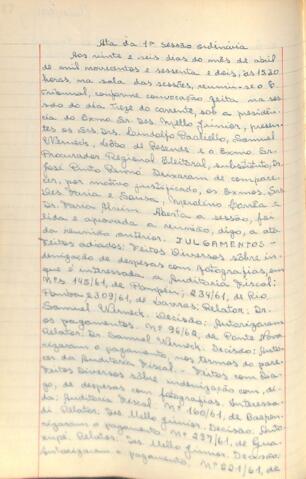 Ata da 1ª sessão ordinária
Aos vinte e seis dias do mês de abril
de mil novecentos e sessenta e dois, às 15,30
horas, na sala das sessões, reuniu-se o E.
Tribunal, conforme convocação feita na ses-
são do dia treze do corrente, sob a presidên-
cia do Exmo Sr. Des. Mello Júnior, presen-
tes os Srs. Drs. Lindolfo Paoliello, Samuel
Werneck, Lêdo de Rezende e o Exmo Sr.
Procurador Regional Eleitoral, substituto, Dr.
José Pinto Renó. Deixaram de compare-
cer, por motivo justificado, os Exmos. Srs.
Des. Faria e Sousa, Merolino Corrêa e
Dr. Alvim. Aberta a sessão, foi
lida e aprovada a reunião, digo, a ata
da reunião anterior. JULGAMENTOS -
Feitos adiados: Feitos Diversos sôbre in-
denização de despesas com fotografias, em
que é interessada a Auditoria Fiscal:
Nºs 145/61, de Pompéu; 234/61, de Rio
Pomba e 309/61, de Lavras. Relator: Dr.
Samuel Werneck. Decisão: Autorizaram
os pagamentos. Nº 96/62, de Ponte Nova
Relator: Dr. Samuel Werneck. Decisão: Auto-
rizaram o pagamento, nos têrmos do pare-
cer da Auditoria Fiscal. - Feitos
Feitos Diversos sôbre indenização com, di-
go, de despesas com fotografias. Interessa-
da: Auditoria Fiscal. Nº 160/61, de Baepen-
di. Relator: Des. Mello Júnior. Decisão: Auto-
rizaram o pagamento. Nº 297/61, de Gua-
xupé. Relator: Des. Mello Júnior. Decisão:
Autorizaram o pagamento. Nº 221/61, de